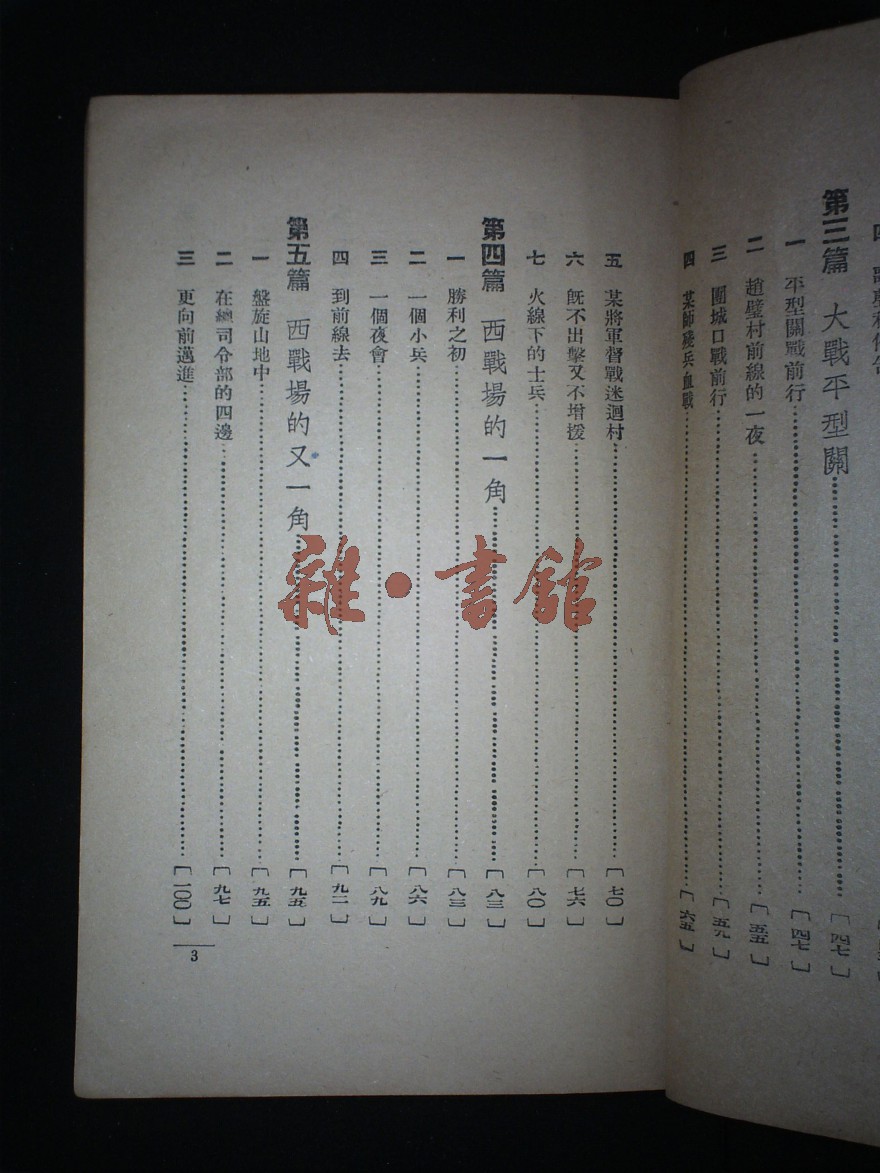 第三篇 大戰平型關 [四七]
一 平型關戰前行 [四七]
二 趙璧村前線的一夜 [五五]
三 團城口戰前行 [五九]
四 某師殘兵血戰 [六五]
五 某將軍督戰迷迴村 [七〇]
六 既不出擊又不增援 [七六]
七 火線下的士兵 [八〇]
第四篇 西戰場的一角 [八三]
一 勝利之初 [八三]
二 一個小兵 [八六]
三 一個夜會 [八九]
四 到前線去 [九二]
第五篇 西戰場的又一角 [九五]
一 盤旋山地中 [九五]
二 在總司令部的四邊 [九七]
三 更向前邁進 [一〇〇]
3
雜·書館